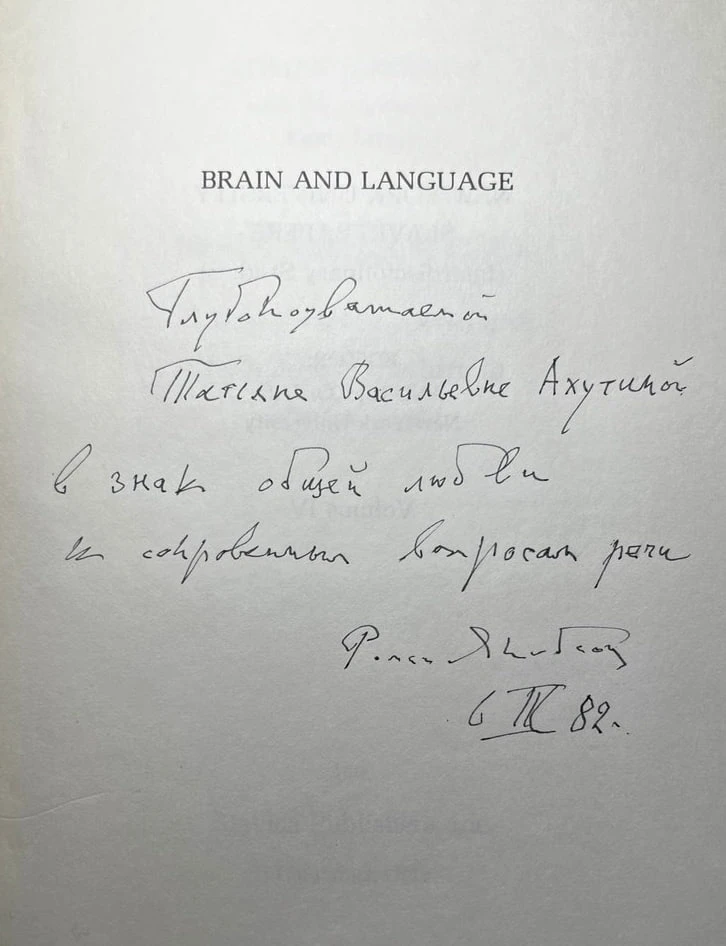 BRAIN AND LANGUAGE
Глубокоуважаемой
Татьяне Васильевне Ахутиной
в знак общей любви
к сокровенным вопросам речи
Роман Якобсон
6 IX 82.